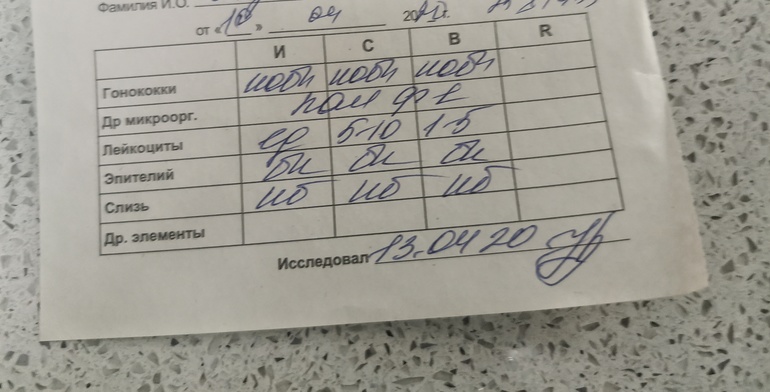 Фамилия И.О.
от « » 04 20 г.
И С В R
Гонококки нобн нобн нобн
Др микроорг. пал ф е
Лейкоциты ед 5-10 1-5
Эпителий бн бн бн
Слизь нб нб нб
Др. элементы
Исследовал 13.04 20